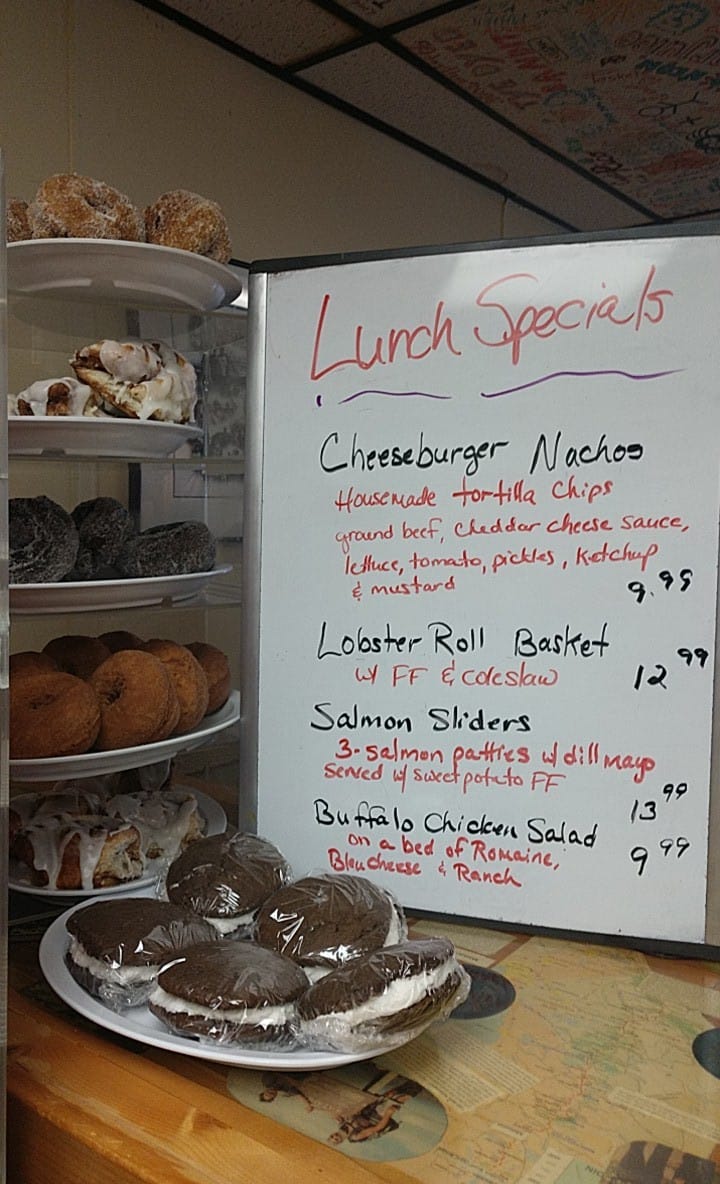 Lunch Specials
Cheeseburger Nachos
Housemade tortilla chips
ground beef, cheddar cheese sauce,
lettuce, tomato, pickles, ketchup
& mustard 9.99
Lobster Roll Basket
w/ FF & coleslaw 12 99
Salmon Sliders
3-salmon patties w/ dill mayo
served w/ sweet potato FF
13 99
Buffalo Chicken Salad
on a bed of Romaine, 9 99
Bleu cheese & Ranch